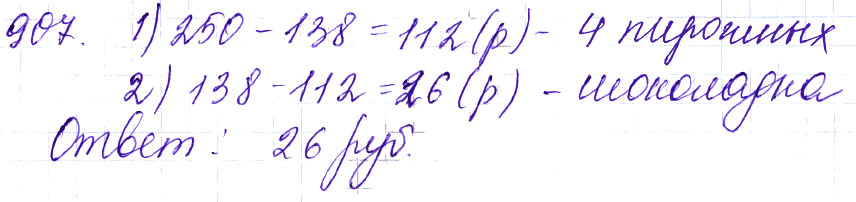 907. 1) 250 - 138 = 112 (р) - 4 пирожных
2) 138 - 112 = 26 (р) - шоколадка
Ответ: 26 руб.